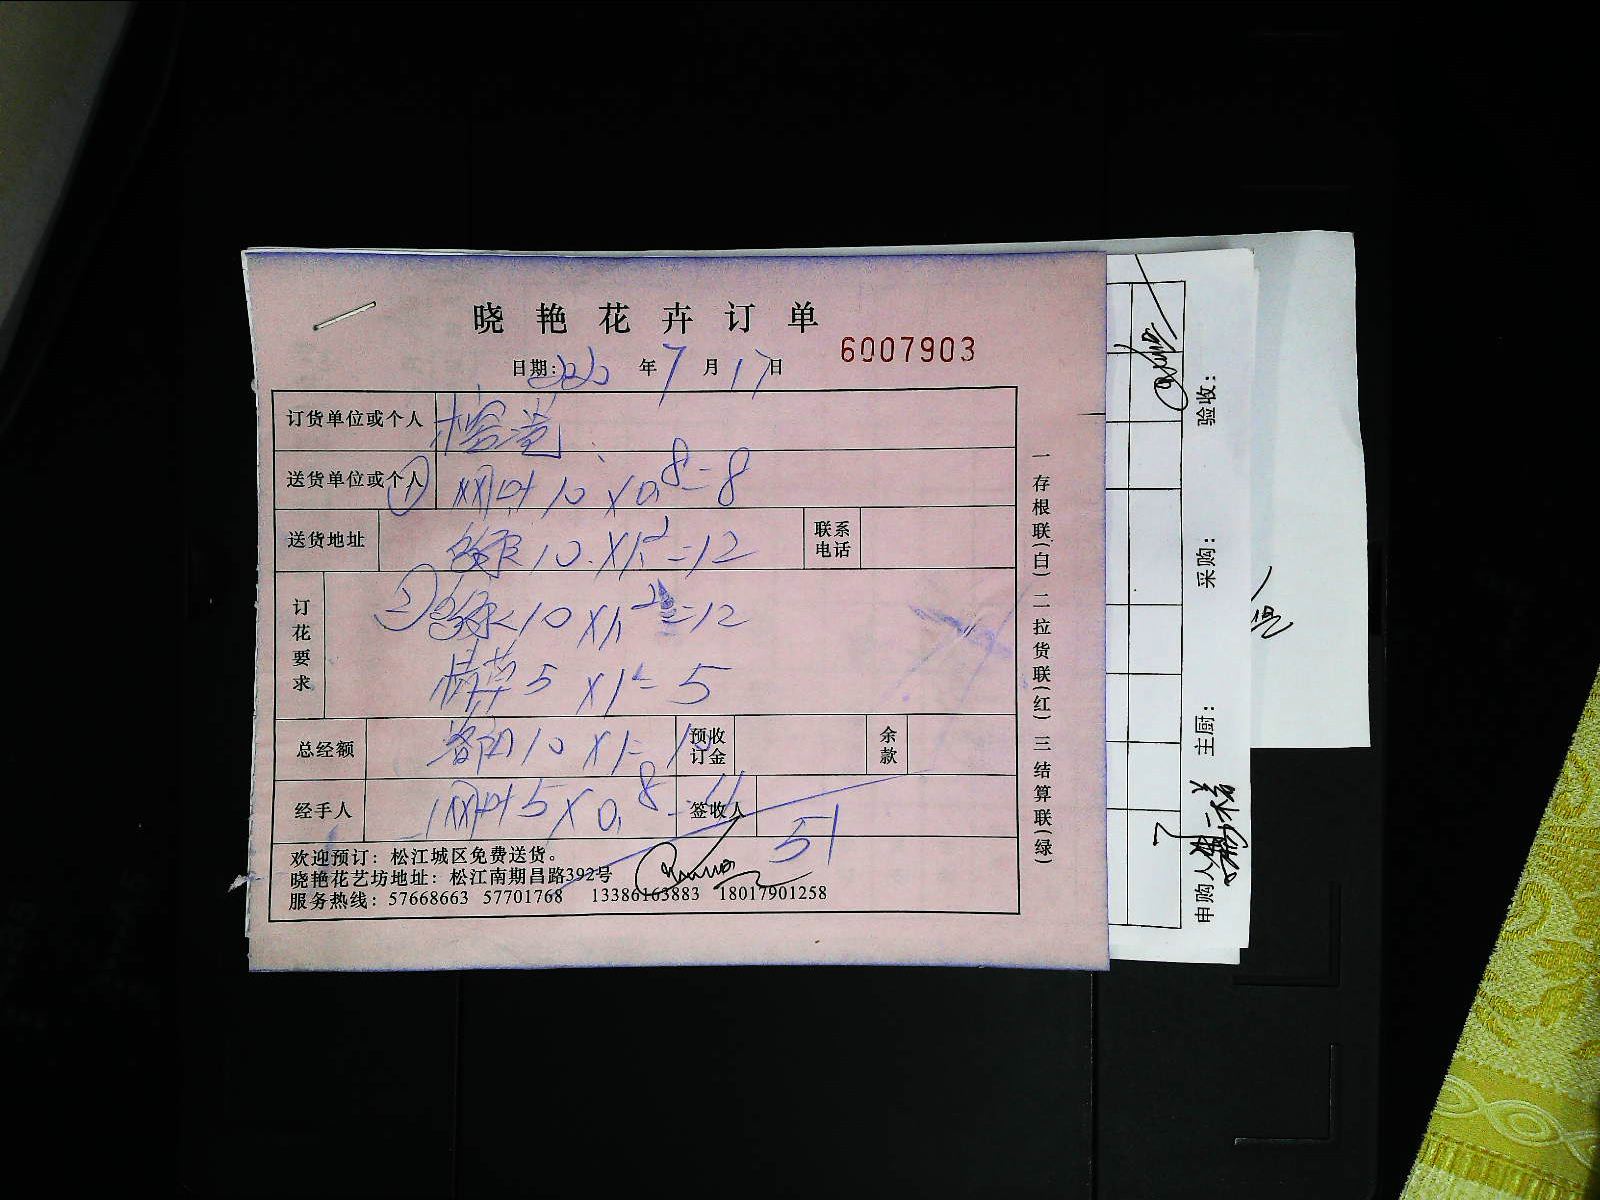 晓艳花卉订单
6007903
日期: 年7月17日
订货单位或个人
送货单位或个人 ① 10 X0.8=8
送货地址 10.X1.2=12 联系电话
订花要求 ② 10 X1.2=12
5 X1=5
总经额 洛阳10 X1=10 预收订金 余款
经手人 5 X0.8=4 签收人
51
欢迎预订：松江城区免费送货。
晓艳花艺坊地址：松江南期昌路392号
服务热线：57668663 57701768 13386163883 18017901258
一存根联(白)二拉货联(红)三结算联(绿)
验收：
采购：
主厨：
申购人
7